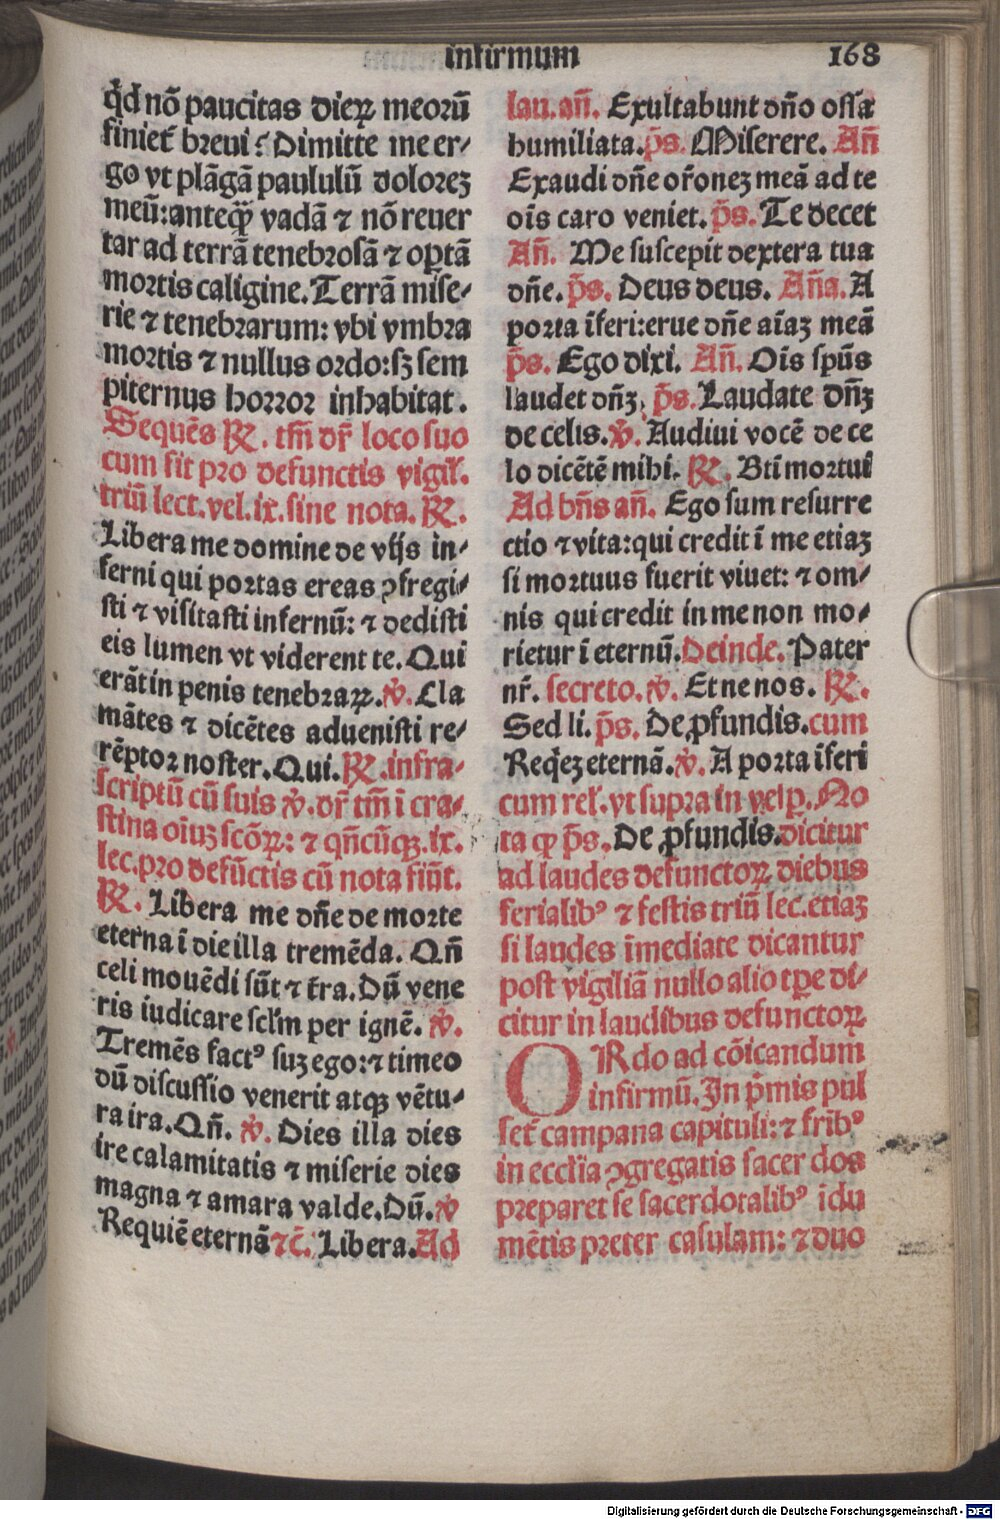 infirmum
168
qd nō paucitas dieꝝ meorū
finiet̄ brevi? Dimitte me er⸗
go vt plāgā paululū dolorez
meū: anteqꝫ vadā ⁊ nō reuer
tar ad terrā tenebrosā ⁊ optā
mortis caligine. Terrā mise⸗
rie ⁊ tenebrarum: vbi vmbra
mortis ⁊ nullus ordo: sꝫ sem
piternus horror inhabitat.
Sequēs ℟. tm̄ dr̄ loco suo
cum sit pro defunctis vigil̄.
triū lect. vel. ix. sine nota. ℟.
Libera me domine de vijs in⸗
ferni qui portas ereas ꝯfregi⸗
sti ⁊ visitasti infernū: ⁊ dedisti
eis lumen vt viderent te. Qui
erāt in penis tenebraꝝ. ℣. Cla
mātes ⁊ dicētes aduenisti re⸗
rēptor noster. Qui. ℟. infra⸗
scriptū cū suis ℣. dr̄ tm̄ ī cra⸗
stina oiuꝫ scōꝝ: ⁊ qn̄cūqꝫ. ix.
lec. pro defūctis cū nota fiūt.
℟. Libera me dn̄e de morte
eterna ī die illa tremēda. Qn̄
celi mouēdi sūt ⁊ t̄ra. Dū vene
ris iudicare scl̄m per ignē. ℣.
Tremēs factꝰ suꝫ ego: ⁊ timeo
dū discussio venerit atqꝫ vētu⸗
ra ira. Qn̄. ℣. Dies illa dies
ire calamitatis ⁊ miserie dies
magna ⁊ amara valde. Dū. ℣
Requiē eternā ⁊c̄. Libera. Ad
lau. an̄. Exultabunt dn̄o ossa
humiliata. p̄s. Miserere. An̄
Exaudi dn̄e or̄onez meā ad te
ois̄ caro veniet. p̄s. Te decet
An̄. Me suscepit dextera tua
dn̄e. p̄s. Deus deus. An̄a. A
porta īferi: erue dn̄e aīaꝫ meā
p̄s. Ego dixi. An̄. Ois̄ spūs
laudet dn̄ꝫ. p̄s. Laudate dn̄ꝫ
de celis. ℣. Audiui vocē de ce
lo dicētē mihi. ℟. Bt̄i mortui
Ad bn̄s an̄. Ego sum resurre
ctio ⁊ vita: qui credit ī me etiaꝫ
si mortuus fuerit viuet: ⁊ om⸗
nis qui credit in me non mo⸗
rietur ī eternū. Deinde. Pater
nr̄. secreto. ℣. Et ne nos. ℟.
Sed li. p̄s. De ꝓfundis. cum
Reqēꝫ eternā. ℣. A porta īferi
cum rel̄. vt supra in vesp̄. No
ta ꝙ p̄s. De ꝓfundis. dicitur
ad laudes defunctoꝝ diebus
ferialibꝰ ⁊ festis triū lec. etiaꝫ
si laudes īmediate dicantur
post vigiliā nullo alio tp̄e di⸗
citur in laudibus defunctoꝝ
ORdo ad cōicandum
infirmū. In p̄mis pul
set̄ campana capituli: ⁊ fr̄ibꝰ
in eccl̄ia ꝯgregatis sacer dos
preparet se sacerdotalibꝰ īdu
mētis preter casulam: ⁊ duo
Digitalisierung gefördert durch die Deutsche Forschungsgemeinschaft - DFG